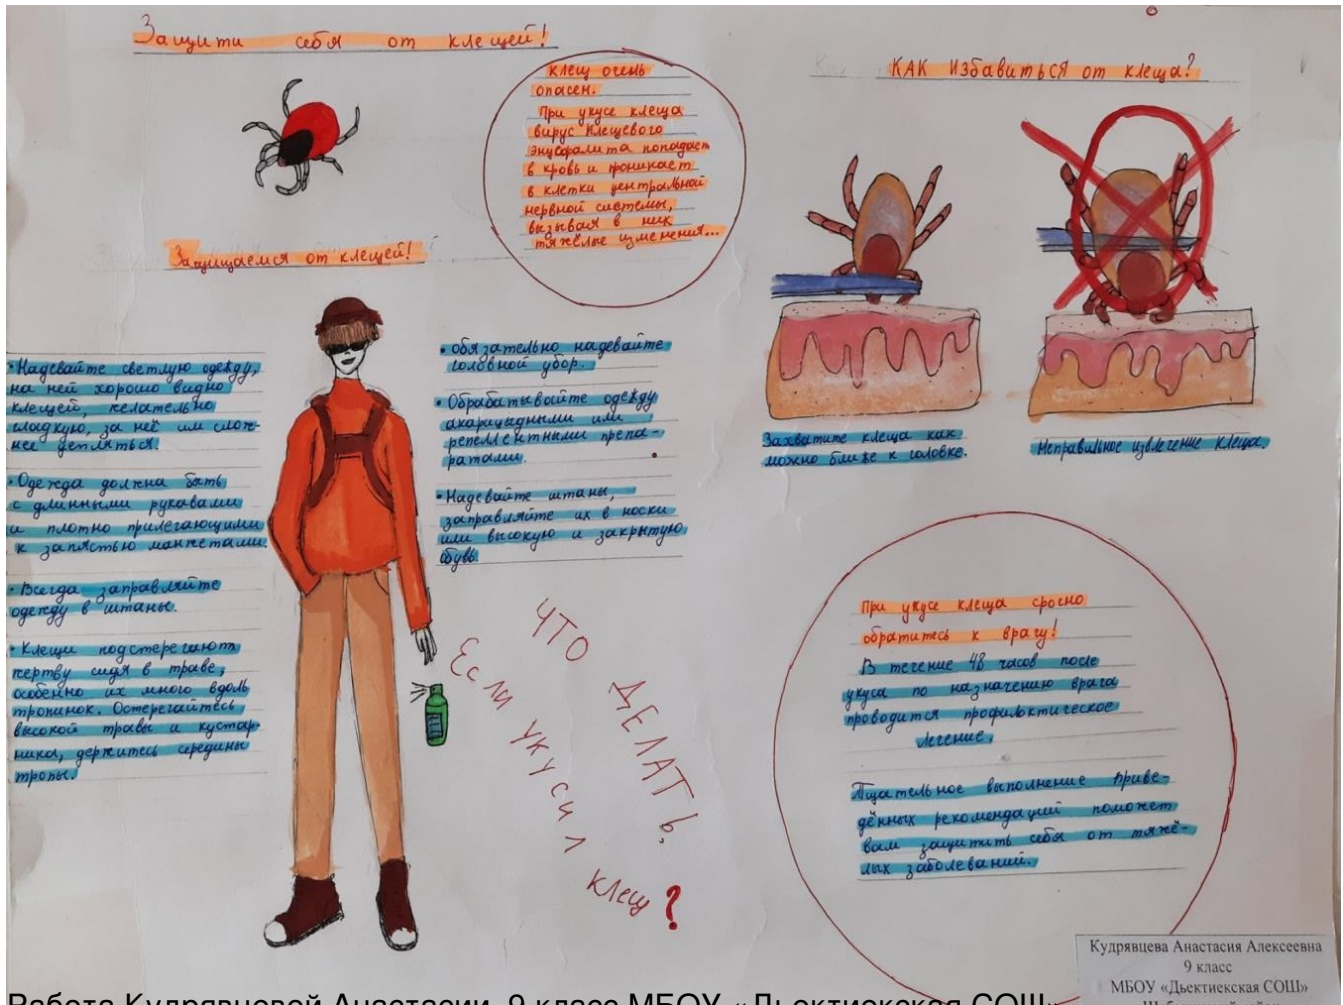 Защити себя от клещей!
клещ очень
опасен.
При укусе клеща
вирус клещевого
энцефалита попадает
в кровь и проникает
в клетки центральной
нервной системы,
вызывая в них
тяжёлые изменения...
Защищаемся от клещей!
• Надевайте светлую одежду,
на ней хорошо видно
клещей, желательно
гладкую, за неё им слож-
нее цепляться.
• Одежда должна быть
с длинными рукавами
и плотно прилегающими
к запястью манжетами.
• Всегда заправляйте
одежду в штаны.
• Клещи подстерегают
жертву сидя в траве,
особенно их много вдоль
тропинок. Остерегайтесь
высокой травы и кустар-
ника, держитесь середины
тропы.
• обязательно надевайте
головной убор.
• Обрабатывайте одежду
акарицидными или
репеллентными препа-
ратами.
• Надевайте штаны,
заправляйте их в носки
или высокую и закрытую
обувь.
ЧТО ДЕЛАТЬ,
Если укусил клещ?
КАК ИЗБАВИТЬСЯ от клеща?
Захватите клеща как
можно ближе к головке.
Неправильное извлечение клеща.
При укусе клеща срочно
обратитесь к врачу!
В течение 48 часов после
укуса по назначению врача
проводится профилактическое
лечение.
Тщательное выполнение приве-
дённых рекомендаций поможет
вам защитить себя от тяжё-
лых заболеваний.
Кудрявцева Анастасия Алексеевна
9 класс
МБОУ «Дьектиекская СОШ»
Работа Кудрявцевой Анастасии, 9 класс МБОУ «Дьектиекская СОШ»